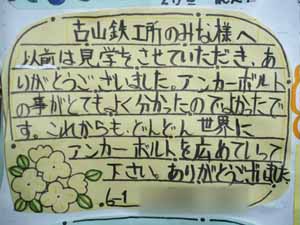 古山鉄工所のみな様へ
以前は見学をさせていただき、あ
りがとうございました。アンカーボルト
の事がとてもよく分かったのでよかったで
す。これからも、どんどん世界に
アンカーボルトを広めていって
下さい。ありがとうございました
6-1